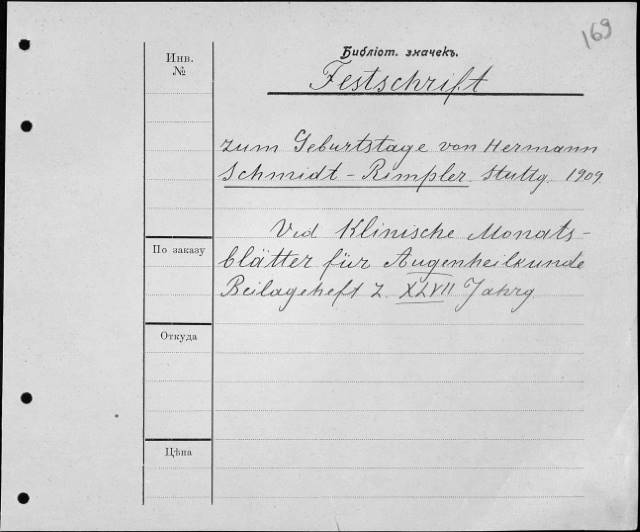 169
Инв.
№
Библіот. значекъ.
Festschrift
zum Geburtstage von Hermann
Schmidt-Rimpler. Stuttg. 1909.
Vid Klinische Monats-
blätter für Augenheilkunde
Beilageheft z. XLVII Jahrg.
По заказу
Откуда
Цѣна